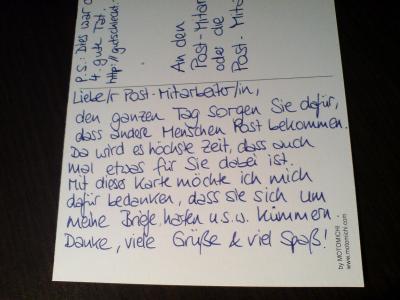 Liebe/r Post-Mitarbeiter/in,
den ganzen Tag sorgen Sie dafür,
dass andere Menschen Post bekommen.
Da wird es höchste Zeit, dass auch
mal etwas für Sie dabei ist.
Mit dieser Karte möchte ich mich
dafür bedanken, dass sie sich um
meine Briefe, Karten u.s.w. kümmern.
Danke, viele Grüße & viel Spaß!
P.S.: Dies war d
4. gute Tat:
http://gutschlecht
An den
Post-Mitar
oder die
Post-Mit
by MOTOMICHI
www.motomichi.com